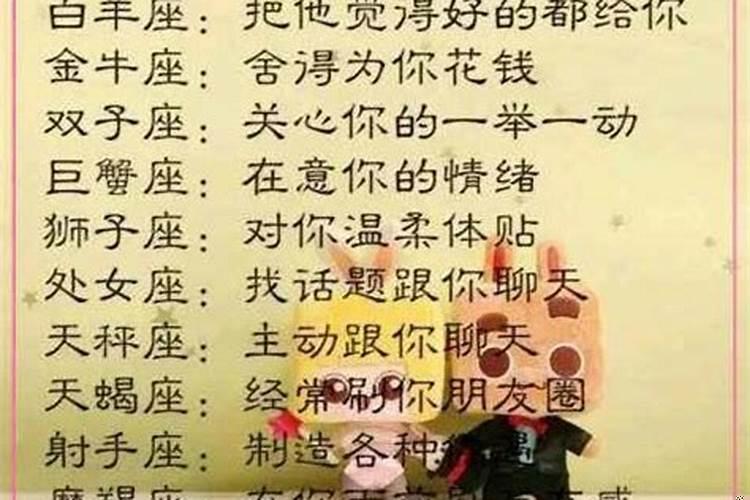 白羊座：把他觉得好的都给你
金牛座：舍得为你花钱
双子座：关心你的一举一动
巨蟹座：在意你的情绪
狮子座：对你温柔体贴
处女座：找话题跟你聊天
天秤座：主动跟你聊天
天蝎座：经常刷你朋友圈
射手座：制造各种偶遇
摩羯座：在你面常刷存在感